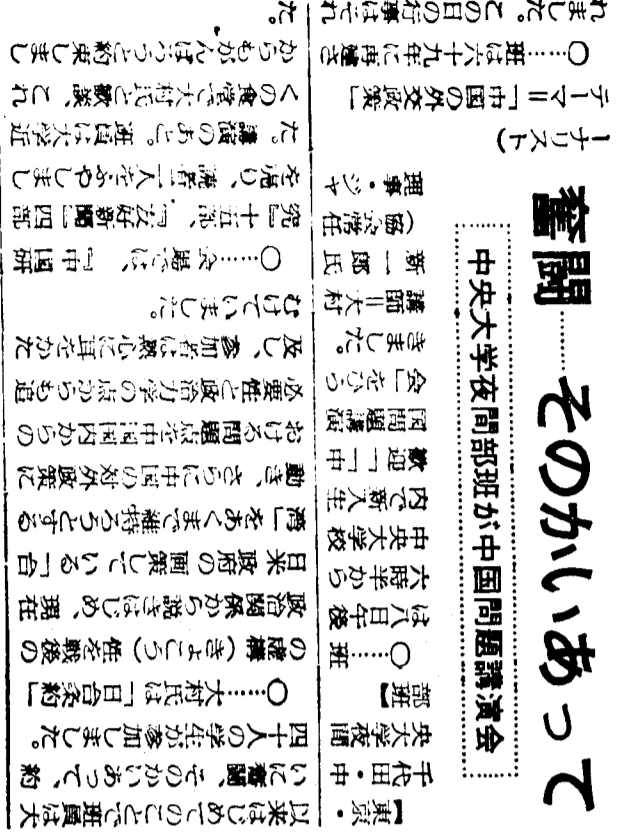 奮闘……そのかいあって
中央大学夜間部班が中国問題講演会
【東京・
千代田・中
央大学夜間
部班】
○……班
は八日午後
六時半から
中央大学校
内で新入生
歓迎「中
国問題講演
会」をひら
きました。
講師＝大村
新一郎氏
（協会常任
理事・ジャ
ーナリスト）
テーマ＝「中国の外交政策」
○……班は六十九年に再建さ
れました。この日の行事はそれ
以来はじめてのことで班員は大
いに奮闘、そのかいあって、約
四十人の学生が参加しました。
○……大村氏は「日台条約」
の虚構（きょこう）性を戦後の
政治関係から説きはじめ、現在
日米政府の画策している「台
湾」をあくまで維持ろうとする
動き、さらに中国の対外政策に
おける問題点を中国国内からの
必要性と政治力学の点からも追
及し、参加者は熱心に耳をかた
むけていました。
○……会場では、『中国研
究』十五部、『友好新聞』四部
を売り、読者一人をふやしまし
た。講演のあと。班員は大学近
くの食堂で大村氏と歓談、これ
からもがんばろうと約束しまし
た。